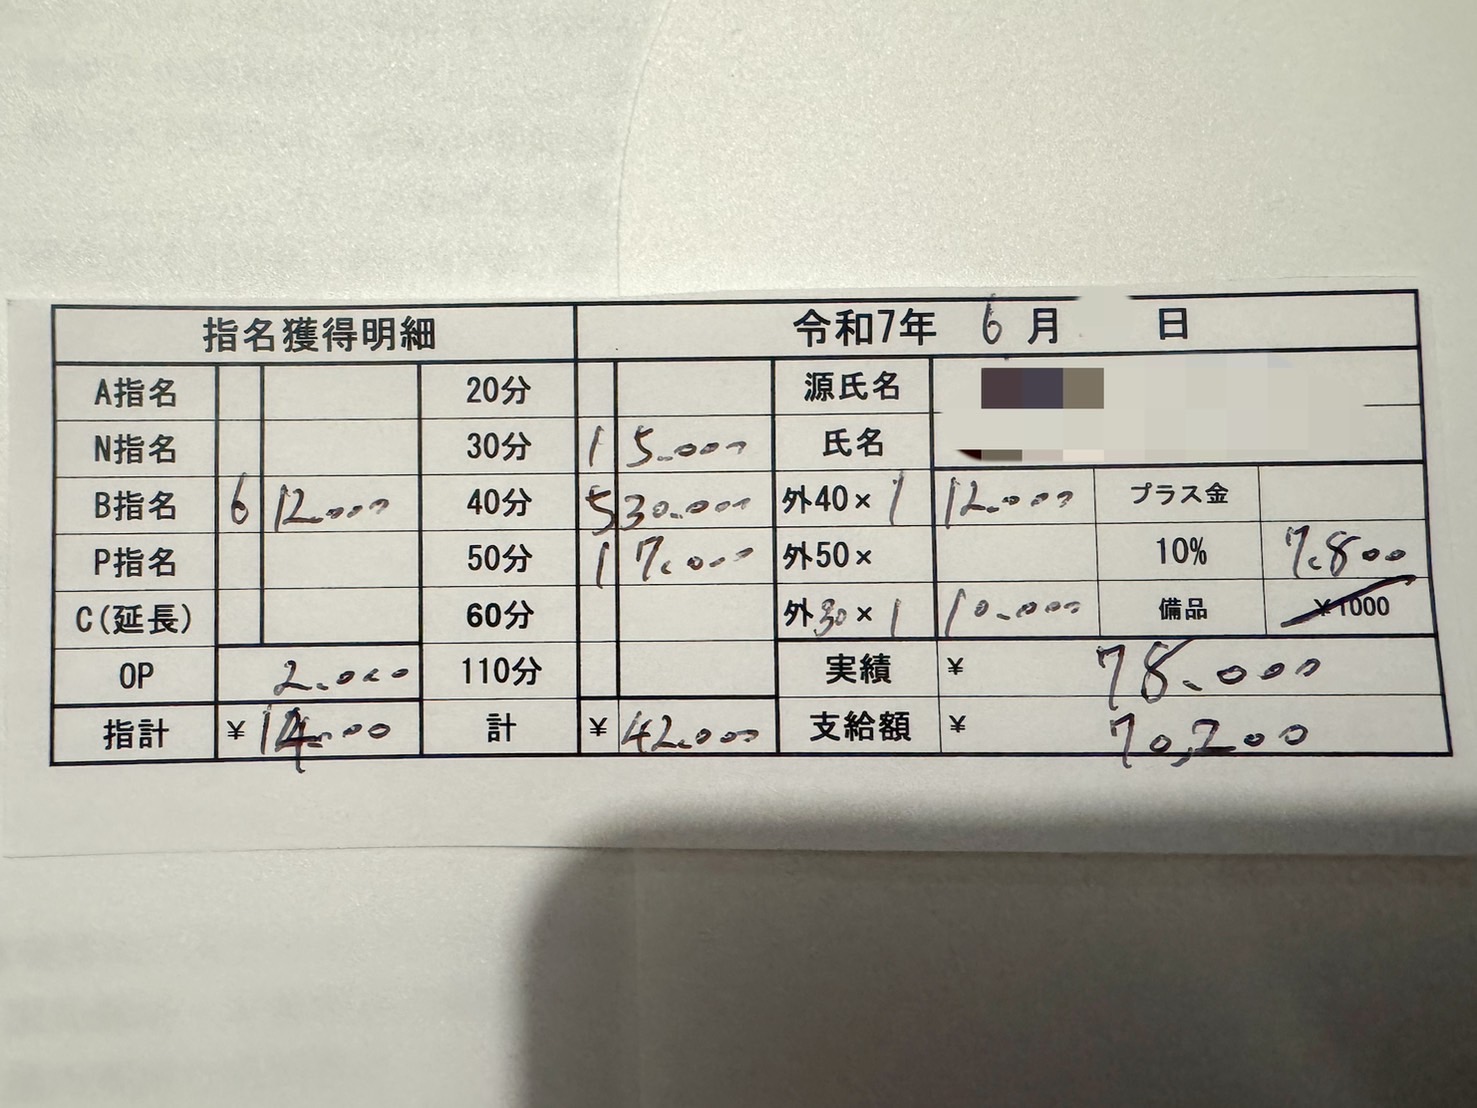 指名獲得明細 令和7年 6月 日
A指名 20分 源氏名
N指名 30分 1 5.000 氏名
B指名 6 12.000 40分 5 30.000 外40× 1 12.000 プラス金
P指名 50分 1 7.000 外50× 10% 7.800
C(延長) 60分 外30× 1 10.000 備品 ¥1000
OP 2.000 110分 実績 ¥ 78.000
指計 ¥ 計 ¥ 42.000 支給額 ¥ 70,200